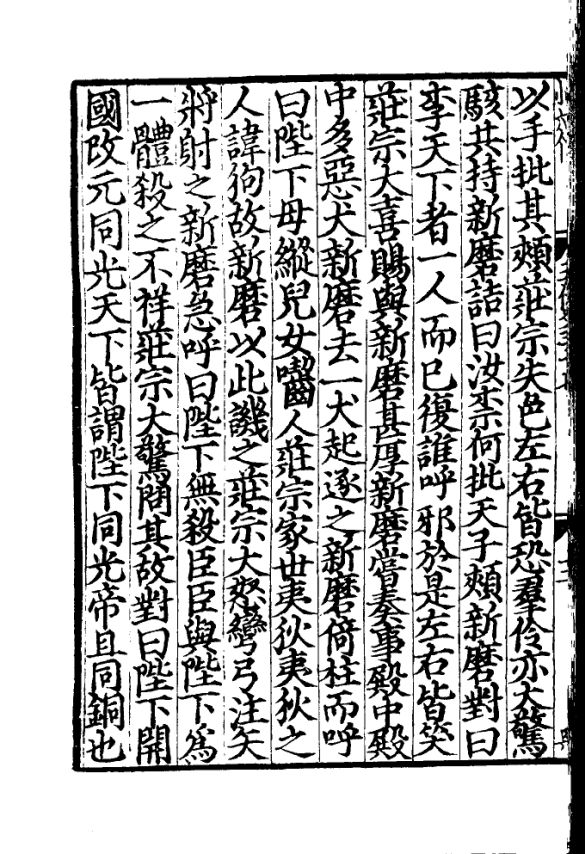 以手批其頰莊宗失色左右皆恐羣伶亦大驚
駭共持新磨詰曰汝柰何批天子頰新磨對曰
李天下者一人而已復誰呼邪於是左右皆笑
莊宗大喜賜與新磨甚厚新磨嘗奏事殿中殿
中多惡犬新磨去一犬起逐之新磨倚柱而呼
曰陛下毋縱兒女囓人莊宗家世夷狄夷狄之
人諱狗故新磨以此譏之莊宗大怒彎弓注矢
將射之新磨急呼曰陛下無殺臣臣與陛下爲
一體殺之不祥莊宗大驚問其故對曰陛下開
國改元同光天下皆謂陛下同光帝且同銅也